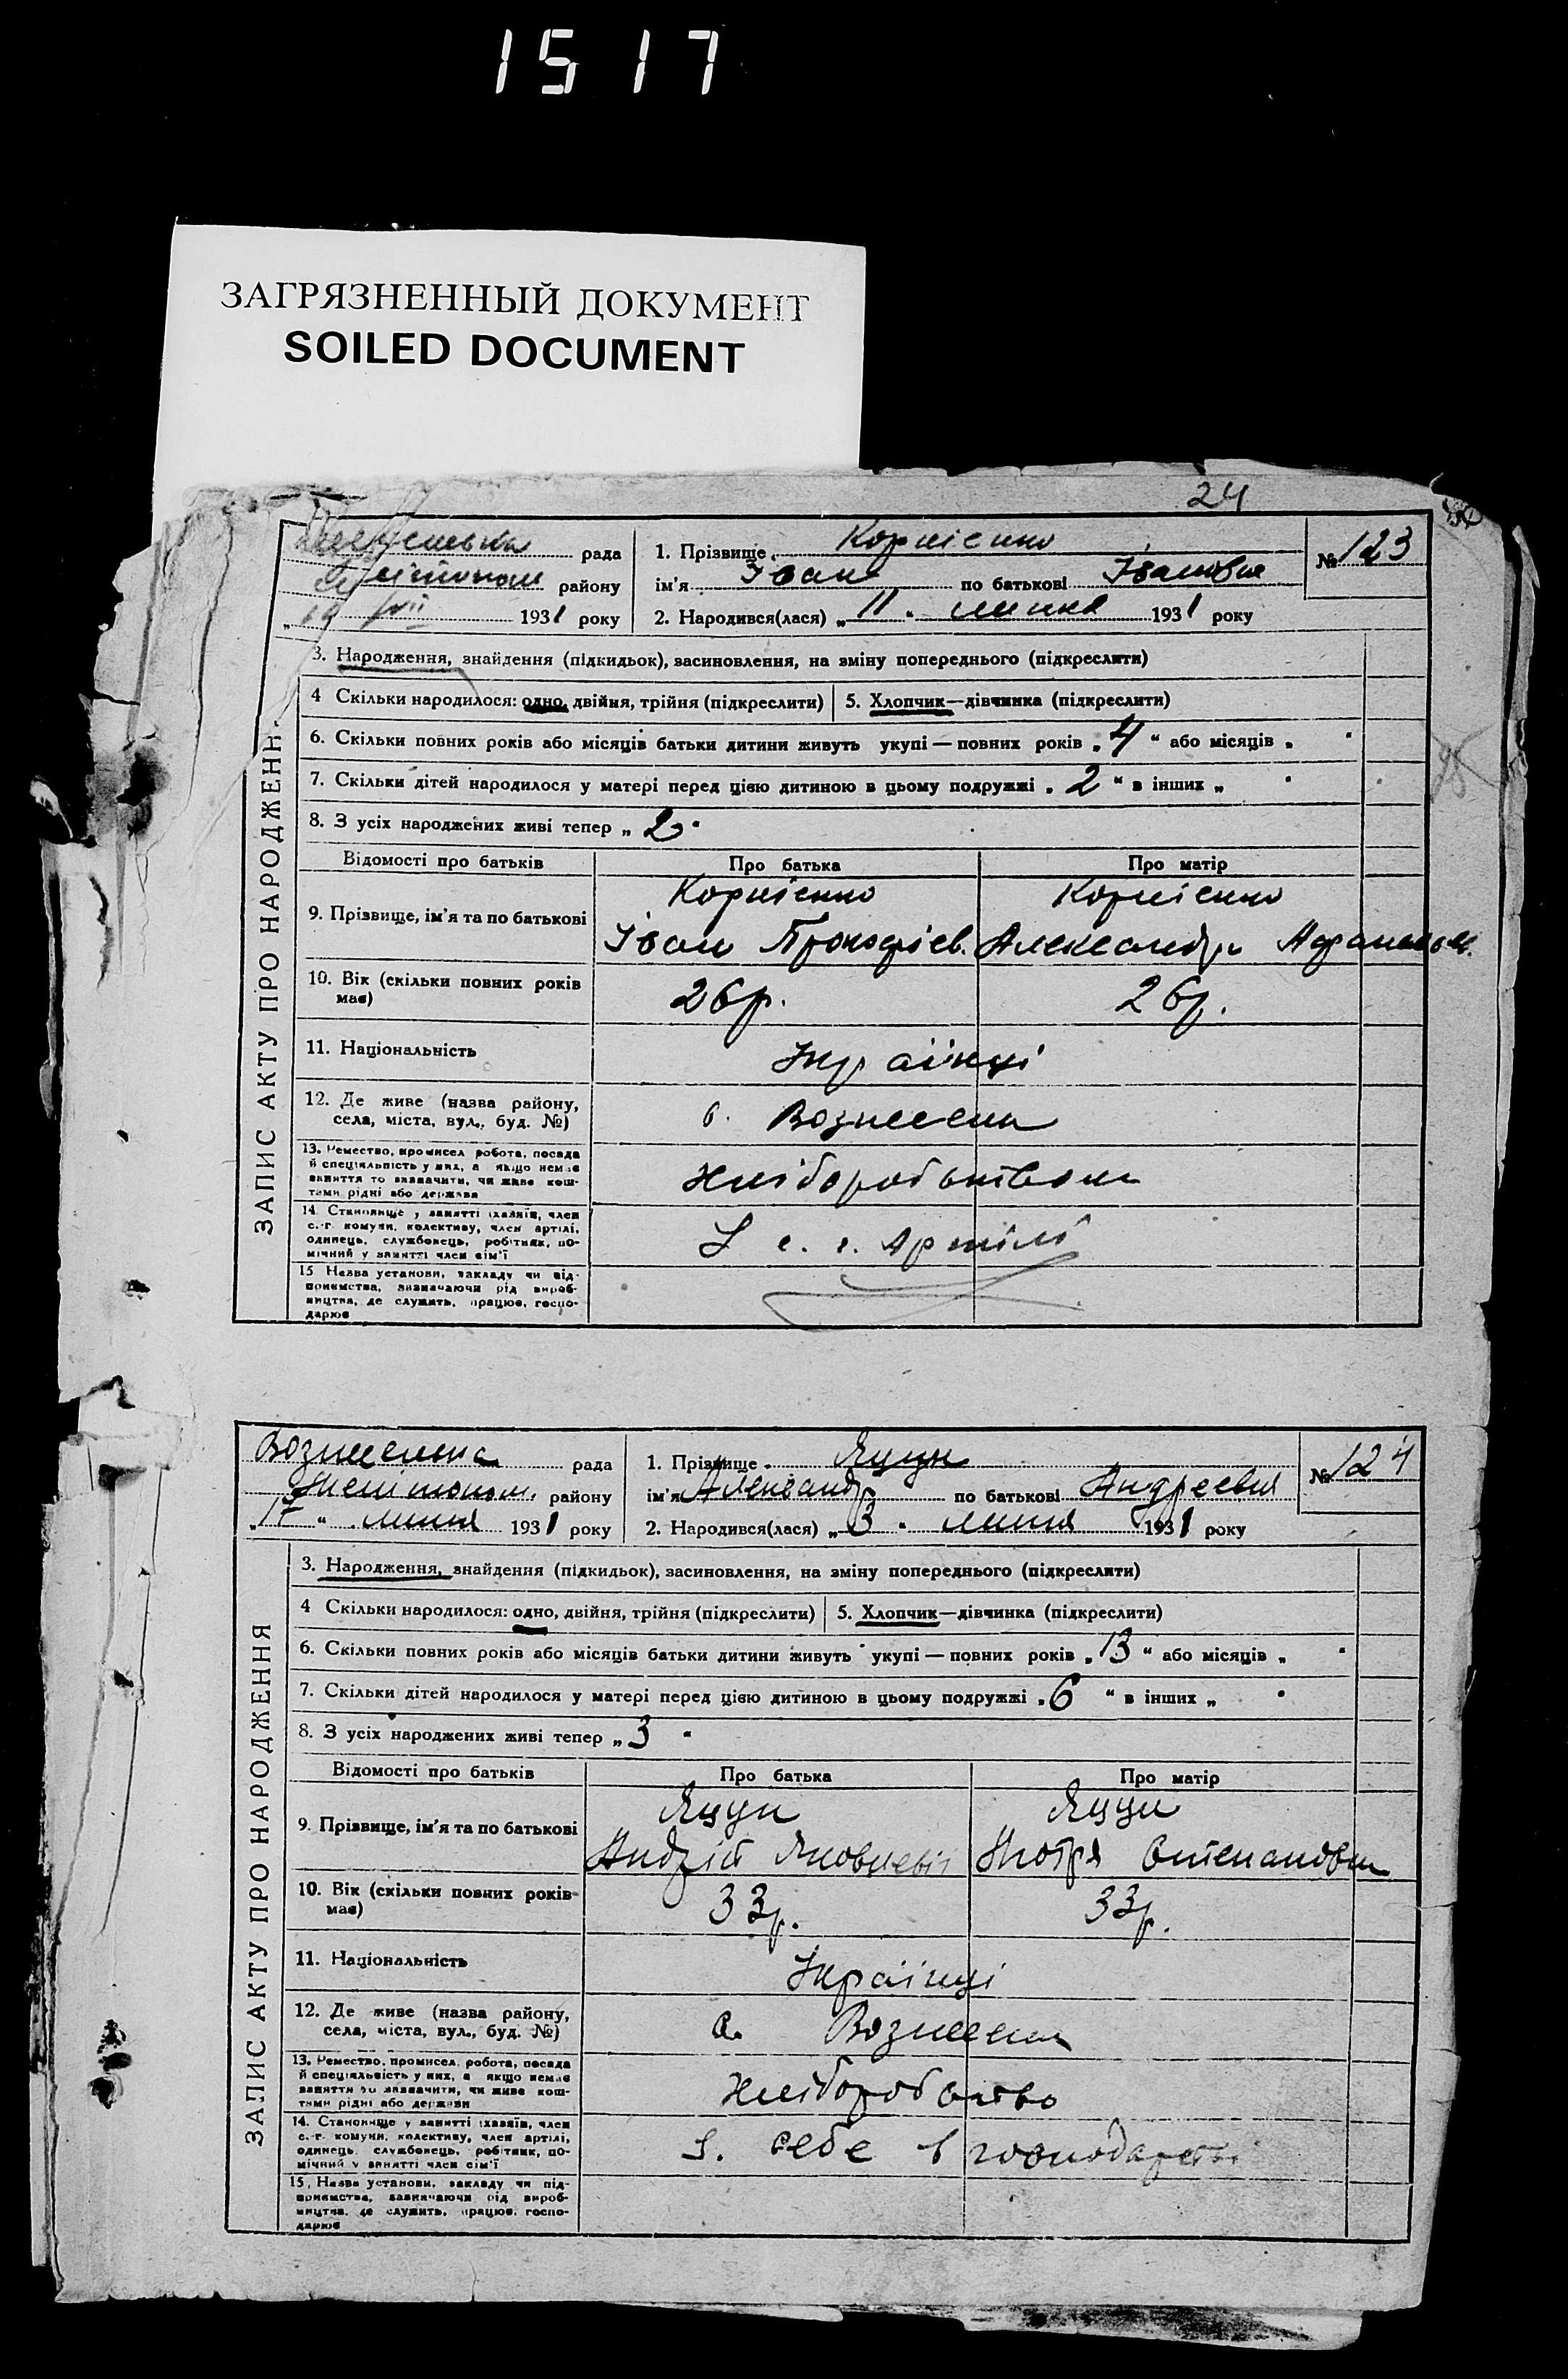 1517
ЗАГРЯЗНЕННЫЙ ДОКУМЕНТ
SOILED DOCUMENT
24
ЗАПИС АКТУ ПРО НАРОДЖЕНН
рада
району
1931 року
1. Прізвище Корнієнко
№ 123
ім'я Іван по батькові Іванович
2. Народився(лася) „11" липня 1931 року
3. Народження, знайдення (підкидьок), засиновлення, на зміну попереднього (підкреслити)
4 Скільки народилося: одно, двійня, трійня (підкреслити) 5. Хлопчик—дівчинка (підкреслити)
6. Скільки повних років або місяців батьки дитини живуть укупі — повних років „4" або місяців „
7. Скільки дітей народилося у матері перед цією дитиною в цьому подружжі „2" в інших „
8. З усіх народжених живі тепер „2"
Відомості про батьків Про батька Про матір
9. Прізвище, ім'я та по батькові
Корнієнко Корнієнко
Іван Прокофієв. Александра
10. Вік (скільки повних років має) 26р. 26р.
11. Національність Українці
12. Де живе (назва району, села, міста, вул., буд. №) с. Вознесен
13. Ремество, промисел робота, посада й спеціяльність у них, а якщо немає заняття то зазначити, чи живе коштами рідні або держави
14. Становище у занятті (хазяїн, член с.-г. комуни, колективу, член артілі, одинець, службовець, робітник, помічний у занятті член сім'ї с. г. Артілі
15 Назва установи, закладу чи підприємства, зазначаючи рід виробництва, де служить, працює, господарює
ЗАПИС АКТУ ПРО НАРОДЖЕННЯ
Вознесенська рада
району
„17" липня 1931 року
1. Прізвище Яцун
№ 124
ім'я Александр по батькові Андреевич
2. Народився(лася) „3" липня 1931 року
3. Народження, знайдення (підкидьок), засиновлення, на зміну попереднього (підкреслити)
4 Скільки народилося: одно, двійня, трійня (підкреслити) 5. Хлопчик—дівчинка (підкреслити)
6. Скільки повних років або місяців батьки дитини живуть укупі — повних років „13" або місяців „ "
7. Скільки дітей народилося у матері перед цією дитиною в цьому подружжі „6" в інших „ "
8. З усіх народжених живі тепер „3"
Відомості про батьків Про батька Про матір
9. Прізвище, ім'я та по батькові
Яцун Яцун
Андрій Яковлевіч Степановна
10. Вік (скільки повних років має) 33р. 33р.
11. Національність Українці
12. Де живе (назва району, села, міста, вул., буд. №) с. Вознесен
13. Ремество, промисел, робота, посада й спеціяльність у них, а якщо немає заняття то зазначити, чи живе коштами рідні або держави Хліборобство
14. Становище у занятті (хазяїн, член с.-г. комуни, колективу, член артілі, одинець, службовець, робітник, помічний у занятті член сім'ї себе в господарстві
15. Назва установи, закладу чи підприємства, зазначаючи рід виробництва, де служить, працює, господарює